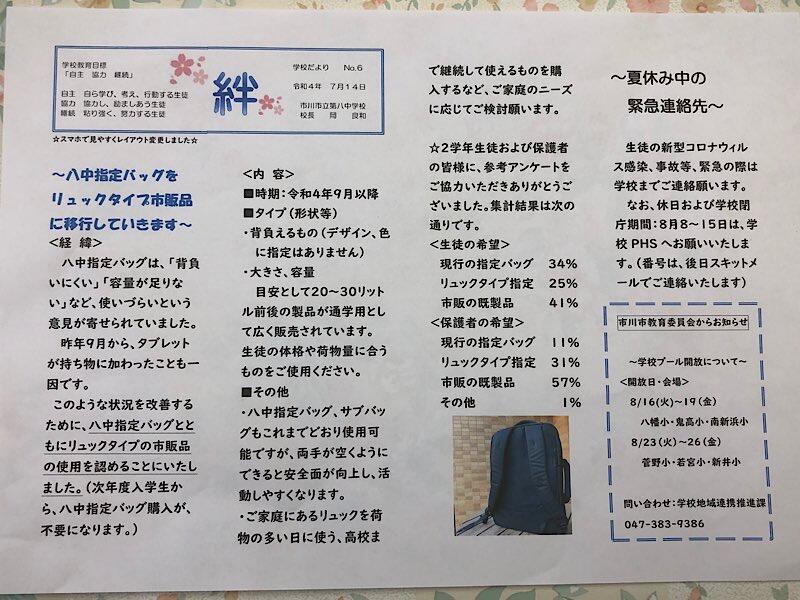 学校教育目標
「自主 協力 継続」
自主 自ら学び、考え、行動する生徒
協力 協力し、励ましあう生徒
継続 粘り強く、努力する生徒
絆
学校だより No.6
令和4年 7月14日
市川市立第八中学校
校長 岡 良和
☆スマホで見やすくレイアウト変更しました☆
～八中指定バッグを
リュックタイプ市販品
に移行していきます～
＜経 緯＞
八中指定バッグは、「背負
いにくい」「容量が足りな
い」など、使いづらいという
意見が寄せられていました。
昨年9月から、タブレット
が持ち物に加わったことも一
因です。
このような状況を改善する
ために、八中指定バッグとと
もにリュックタイプの市販品
の使用を認めることにいたし
ました。(次年度入学生か
ら、八中指定バッグ購入が、
不要になります。)
＜内 容＞
■時期：令和4年9月以降
■タイプ(形状等)
・背負えるもの(デザイン、色
に指定はありません)
・大きさ、容量
目安として20～30リット
ル前後の製品が通学用とし
て広く販売されています。
生徒の体格や荷物量に合う
ものをご使用ください。
■その他
・八中指定バッグ、サブバッ
グもこれまでどおり使用可
能ですが、両手が空くように
できると安全面が向上し、活
動しやすくなります。
・ご家庭にあるリュックを荷
物の多い日に使う、高校ま
で継続して使えるものを購
入するなど、ご家庭のニーズ
に応じてご検討願います。
☆2学年生徒および保護者
の皆様に、参考アンケートを
ご協力いただきありがとうご
ざいました。集計結果は次の
通りです。
＜生徒の希望＞
現行の指定バッグ 34%
リュックタイプ指定 25%
市販の既製品 41%
＜保護者の希望＞
現行の指定バッグ 11%
リュックタイプ指定 31%
市販の既製品 57%
その他 1%
～夏休み中の
緊急連絡先～
生徒の新型コロナウィル
ス感染、事故等、緊急の際は
学校までご連絡願います。
なお、休日および学校閉
庁期間：8月8～15日は、学
校PHSへお願いいたしま
す。(番号は、後日スキットメ
ールでご連絡いたします)
市川市教育委員会からお知らせ
～学校プール開放について～
＜開放日・会場＞
8/16(火)～19(金)
八幡小・鬼高小・南新浜小
8/23(火)～26(金)
菅野小・若宮小・新井小
問い合わせ：学校地域連携推進課
047-383-9386